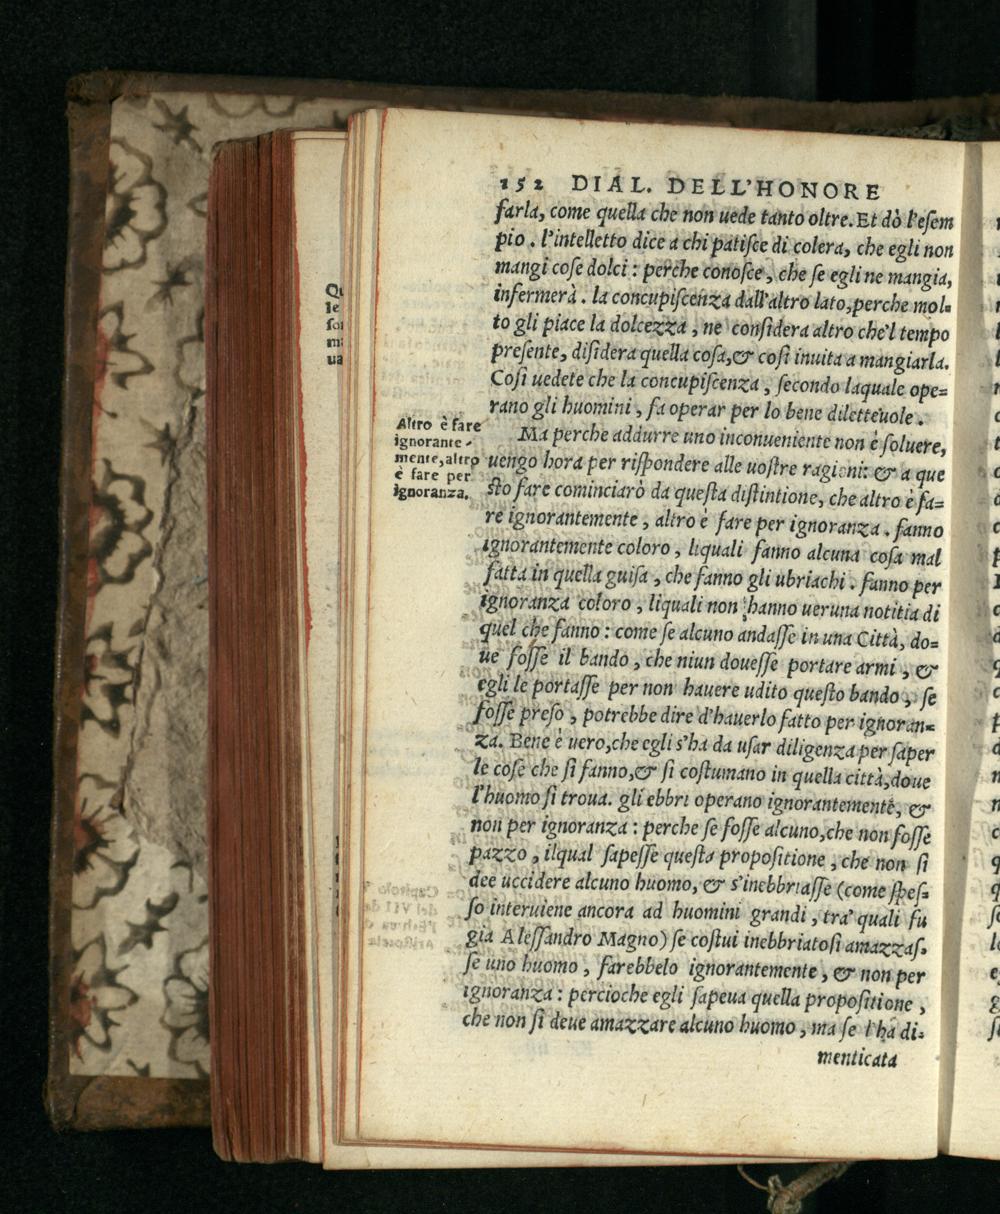 152 DIAL. DELL'HONORE
farla, come quella che non uede tanto oltre. Et dò l'esem
pio. l'intelletto dice a chi patisce di colera, che egli non
mangi cose dolci: perche conosce, che se egli ne mangia,
infermerà. la concupiscenza dall'altro lato, perche mol=
to gli piace la dolcezza, ne considera altro che'l tempo
presente, disidera quella cosa, & cosi inuita a mangiarla.
Cosi uedete che la concupiscenza, secondo laquale ope=
rano gli huomini, fa operar per lo bene diletteuole.
Altro è fare
ignorante-
mente, altro
è fare per
ignoranza.
Ma perche addurre uno inconueniente non è soluere,
uengo hora per rispondere alle uostre ragioni: & a que
sto fare comincierò da questa distintione, che altro è fa=
re ignorantemente, altro è fare per ignoranza. fanno
ignorantemente coloro, liquali fanno alcuna cosa mal
fatta in quella guisa, che fanno gli ubriachi. fanno per
ignoranza coloro, liquali non hanno ueruna notitia di
quel che fanno: come se alcuno andasse in una Città, do=
ue fosse il bando, che niun douesse portare armi, &
egli le portasse per non hauere udito questo bando, se
fosse preso, potrebbe dire d'hauerlo fatto per ignoran=
za. Bene è uero, che egli s'ha da usar diligenza per saper
le cose che si fanno, & si costumano in quella città, doue
l'huomo si troua. gli ebbri operano ignorantemente, &
non per ignoranza: perche se fosse alcuno, che non fosse
pazzo, ilqual sapesse questa propositione, che non si
dee uccidere alcuno huomo, & s'inebbriasse (come spes=
so interuiene ancora ad huomini grandi, tra' quali fu
gia Alessandro Magno) se costui inebbriatosi amazzas=
se uno huomo, farebbelo ignorantemente, & non per
ignoranza: percioche egli sapeua quella propositione,
che non si deue amazzare alcuno huomo, ma se l'ha di=
menticata